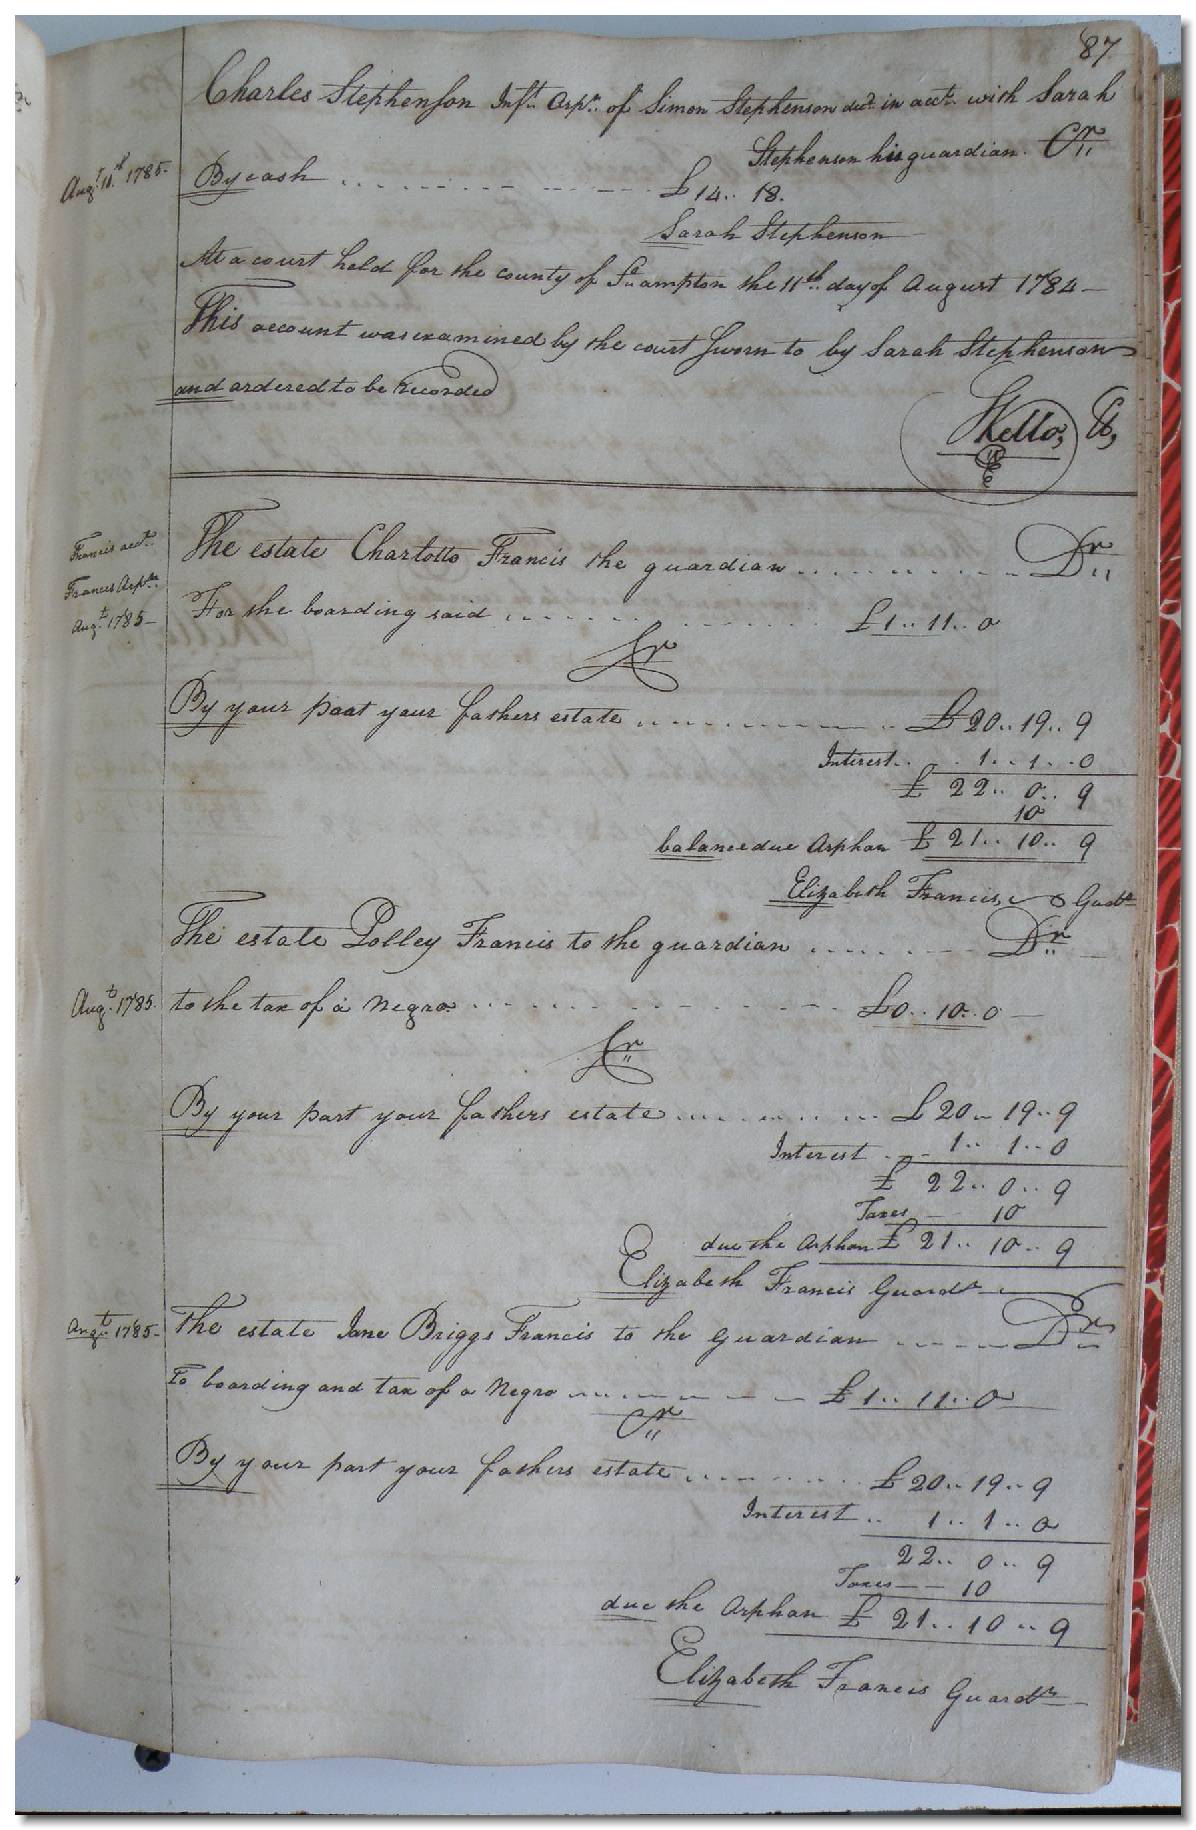 87
Charles Stephenson Inft. Orpn. of Simon Stephenson decd. in acct. with Sarah
Stephenson his guardian. Cr
Augt. 11th 1785.
By cash £ 14.. 18.
Sarah Stephenson
At a court held for the county of So.ampton the 11th. day of August 1784
This account was examined by the court Sworn to by Sarah Stephenson
and ordered to be recorded
Kello, Ck,
Francis acct.
Francis Orphn.
Augt. 1785
The estate Charlotte Francis the guardian Dr
For the boarding said £1.. 11.. 0
Cr
By your paat your fathers estate £20.. 19.. 9
Interest 1.. 1.. 0
£ 22.. 0.. 9
10
balance due Orphan £ 21.. 10.. 9
Elizabeth Francis Gudn
The estate Polley Francis to the guardian Dr
Augt. 1785. to the tax of a Negro £0.. 10.. 0
Cr
By your part your fathers estate £20.. 19.. 9
Interest 1.. 1.. 0
£ 22.. 0.. 9
Taxes 10
due the Orphan £ 21.. 10.. 9
Elizabeth Francis Guardn
Augt. 1785 The estate Jane Briggs Francis to the guardian Dr
To boarding and tax of a Negro £1.. 11.. 0
Cr
By your part your fathers estate £20.. 19.. 9
Interest 1.. 1.. 0
22.. 0.. 9
Taxes 10
due the Orphan £ 21.. 10.. 9
Elizabeth Francis Guardn